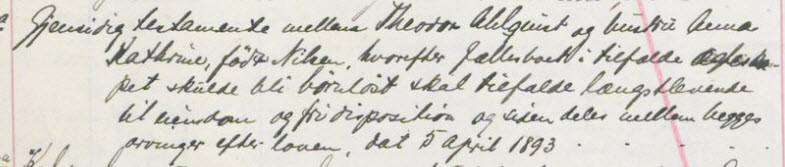 Gjensidig testamente mellem Theodor Ahlquist og hustru Anna
Kathrine, født Nilsen, hvorefter fællesboet i tilfælde egteska-
pet skulde bli barnløst skal tilfalde længstlevende
til eiendom og fri disposition og siden deles mellem begges
arvinger efter loven, dat 5 april 1893 . . . .